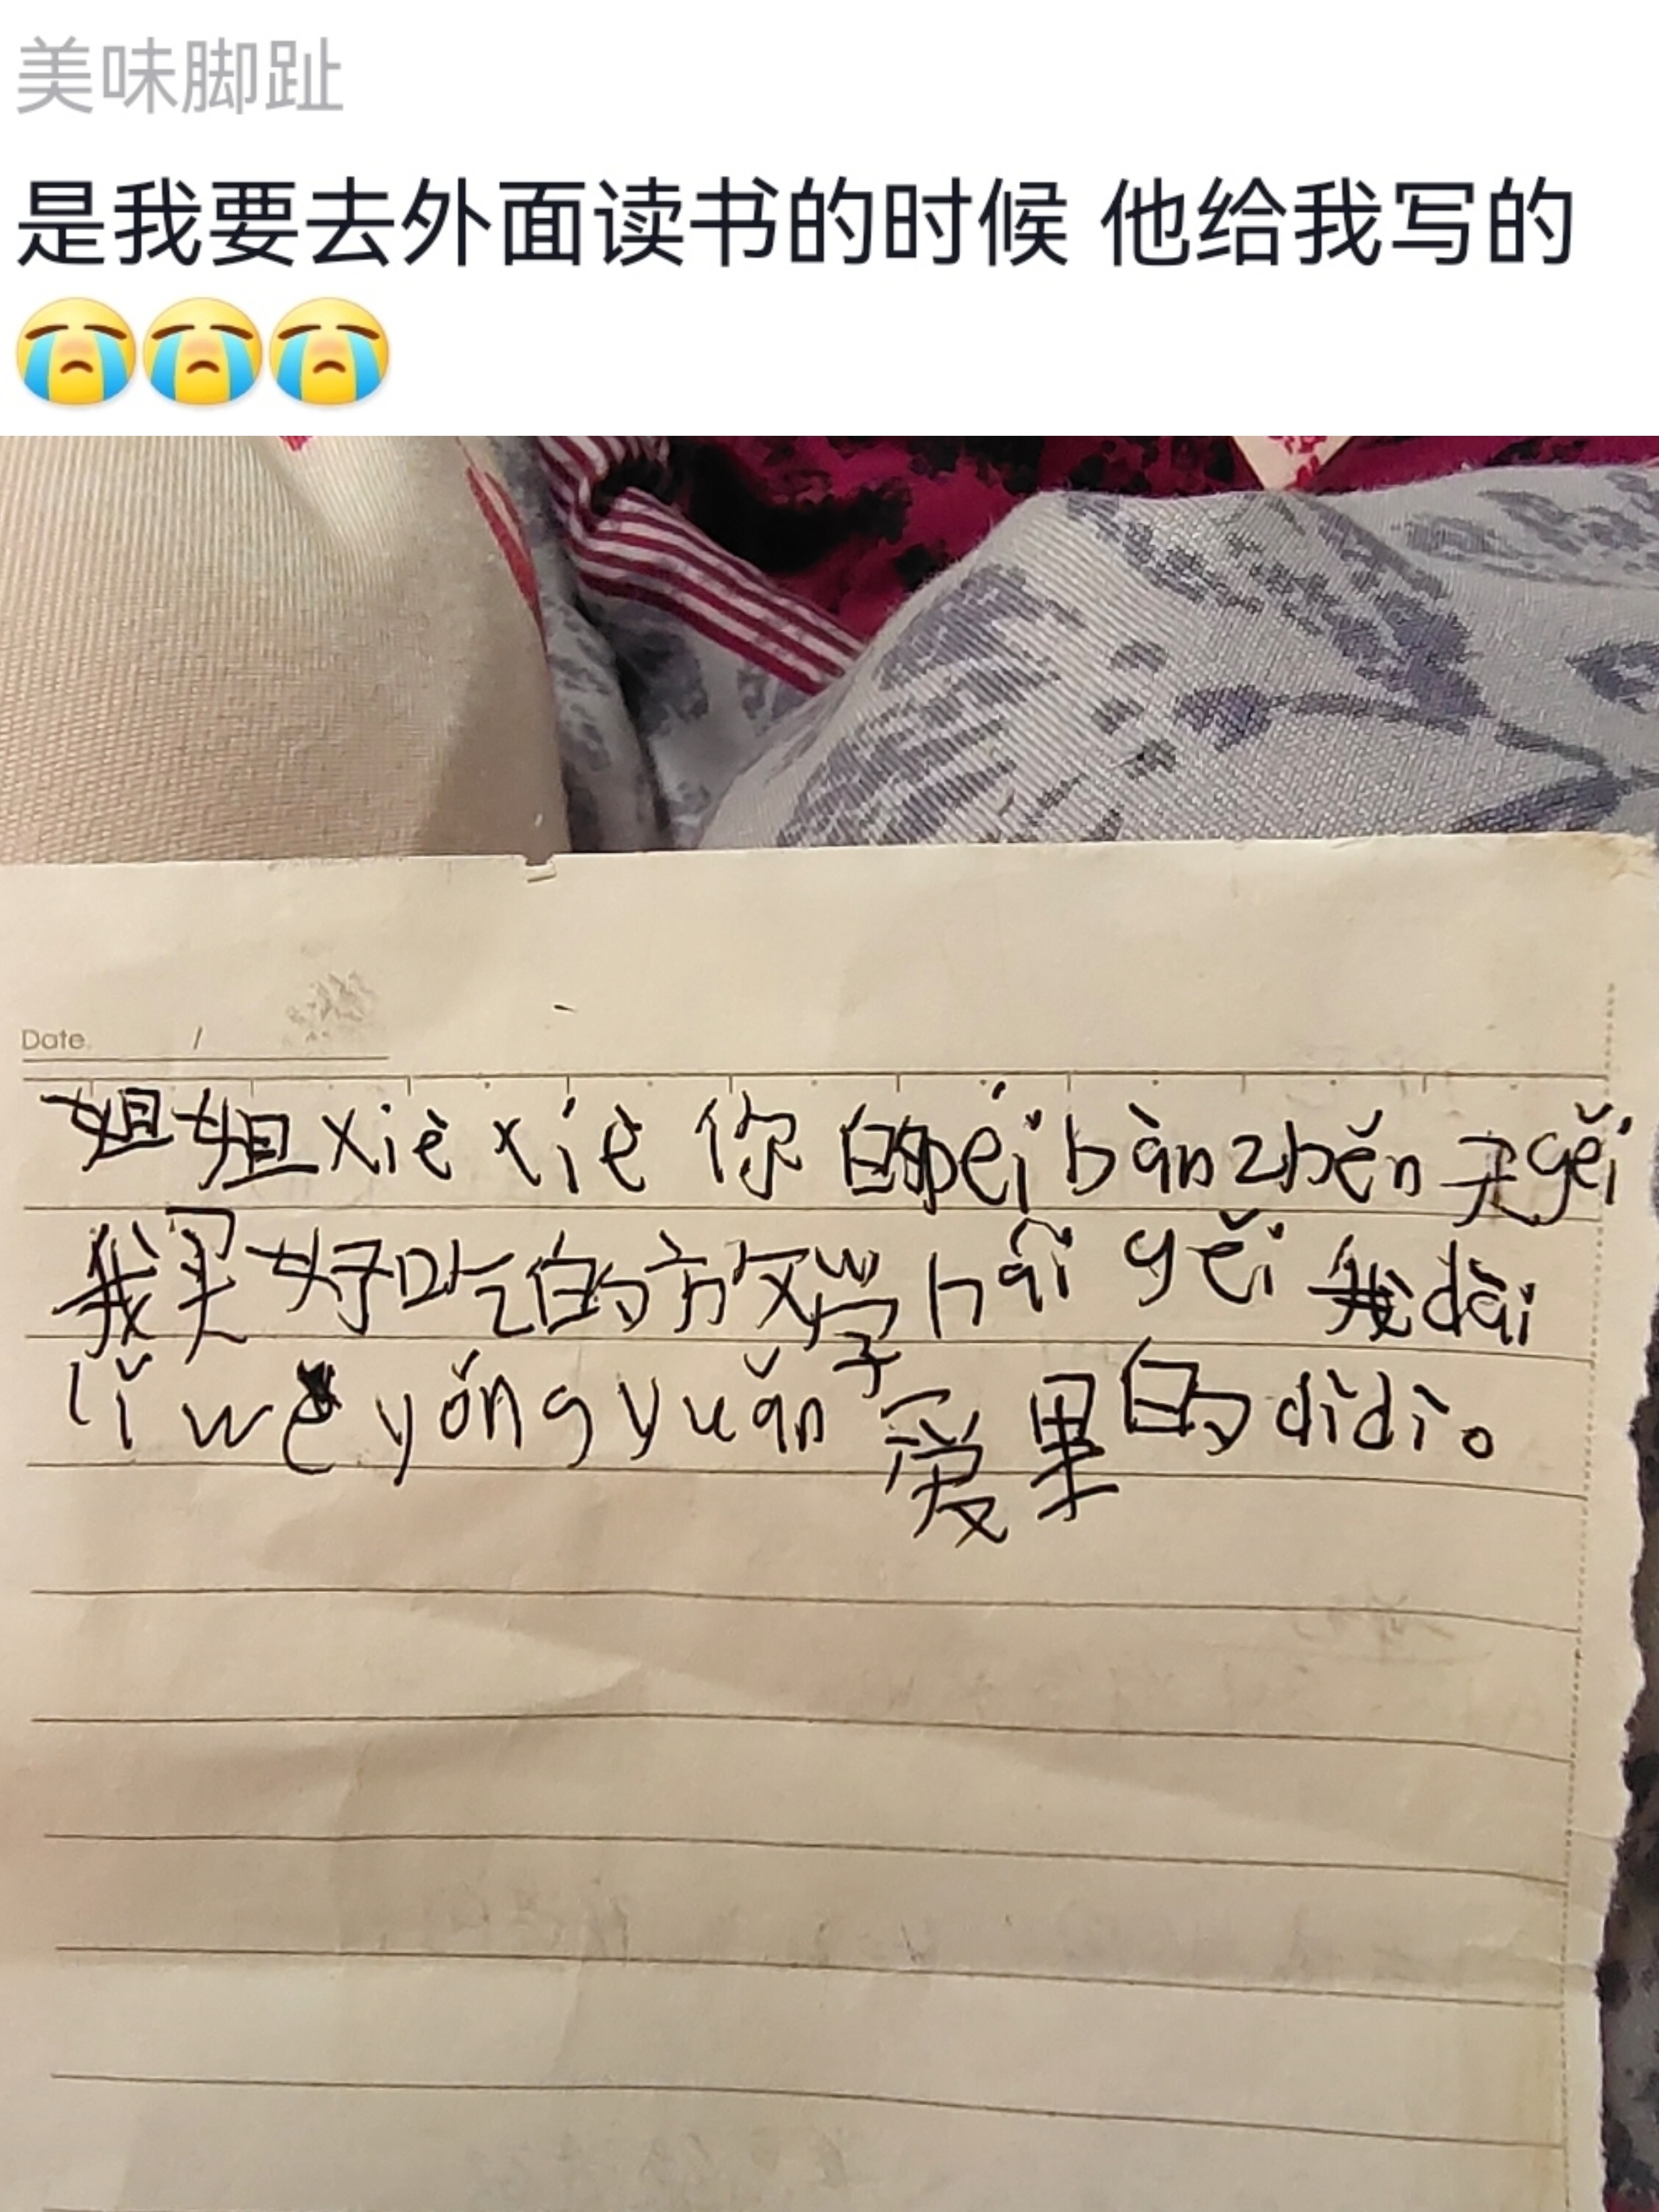 美味脚趾
是我要去外面读书的时候 他给我写的
😭😭😭
Date. /
姐姐xiè xiè 你的péi bàn zhěn 天gěi
我买好吃的方文学hāi gěi 我dài
lǐ w yǒng yuǎn 爱果的dìdì。